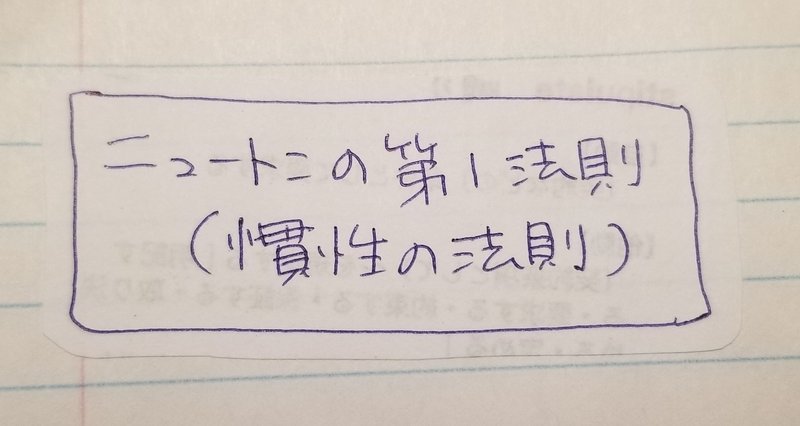 ニュートニの第1法則
(慣性の法則)